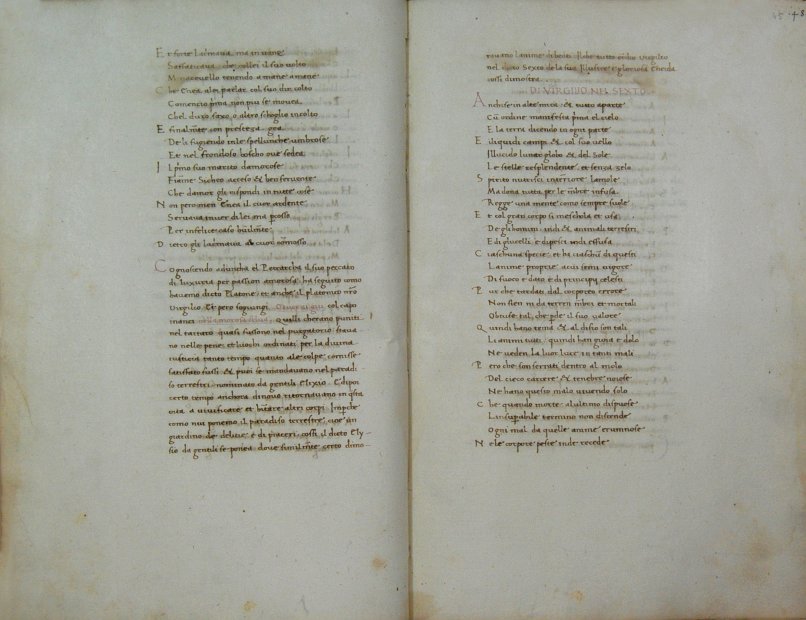 Et forte Lachrimaua, ma in uano
Satisfaceua, che collei il suo uolto
Mi nacevello tenendo a mane a mane
Che Enea alei parlar col suo dir uolto
Comencio prima non piu se moueua
Chel duro saxo, o altro schoglio incolto
E finalmente con prestezza
De li fugiendo inle spelunche umbrose
Et nel frondoso boscho oue sedea
Il primo suo marito damorose
Fiame Sicheo acceso & ben feruente
Che damor gli rispondi in tutte cose
Non pero men Enea il cuor ardente
Seruaua inuer di lei ma percosso
Per infelice caso humilmente
Dietro gli lachrimaua & cuor commosso
Cognoscendo aduncha el Petrarcha il suo peccato
di luxuria per passion amorosa, ha seguito como
hauemo dicto Platone, et anche il platonico nro
Virgilio. Et pero sogiungi. col capo
inanci quilli cherano puniti
nel tartaro quasi fussono nel purgatorio staua
no nelle pene, et luochi ordinati per la diuina
iusticia tanto tempo quanto ale colpe comisse
satisfato fussi. & puoi se mandauano nel paradi
so terrestri nominato da gentili Elixio. E dipoi
certo tempo anchora dinouo ritornauano in questa
uita a uiuificare et habitare altri corpi. Impche
como nui ponemo il paradiso terrestre, cioe un
giardino de delitie e di piaceri, cossi il dicto Ely
sio da gentili se ponea doue similmente certo dimo
45 · 48
rauano lanime di beati. Ilche tutto dichio Virgilio
nel dicto Sexto de la sua Illustre e gloriosa Eneida
cossi dimostra.
DI VIRGILIO NEL SEXTO
Anchise in alte inuia & tutto aparte
Cum ordine manifesta prima el cielo
E la terra dicendo in ogni parte
E di quidi campi & col suo uello
Illucido lunar globo & del Sole
Le stelle resplendente, et senza zelo
Spirito nutrisci interiore lamole
Ma dona tutti per le membre infusa
Regge una mente como sempre suole
Et col gran corpo si meschola et usa
De gli homini indi & animali terrestri
E di giucelli, e di pesci indi effusa
Ciaschuna specie, et ha ciaschun di questi
Lanime proprie, a cui semi uigore
Di fuoco e dato e di principij celesti
Pur che tardati dal corporeo errore
Non sien ni da terreni membri et mortali
Obtuse tal, che perde il suo ualore
Quindi han tema & al disio son tali
Li animi tuti, quindi han gioia e dolo
Ne ueden La luor luce in tanti mali
Pero che son serrati dentro al molo
Del cieco carcere & tenebre noiose
Ne hano questo malo uiuendo solo
Che quando morte al ultimo dispuose
Linsuperabile termino non discende
Ogni mal da quelle anime erumnose
Ne le corporee peste inde recede